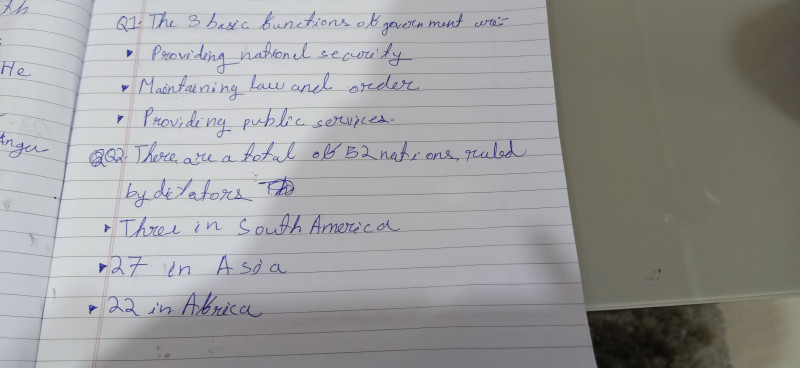 th
Q1. The 3 basic functions of government are:-
Providing national security
He
Maintaining law and order
Providing public services.
Anger
Q2. There are a total of 52 nations, ruled
by dictators
Three in South America
27 in Asia
22 in Africa